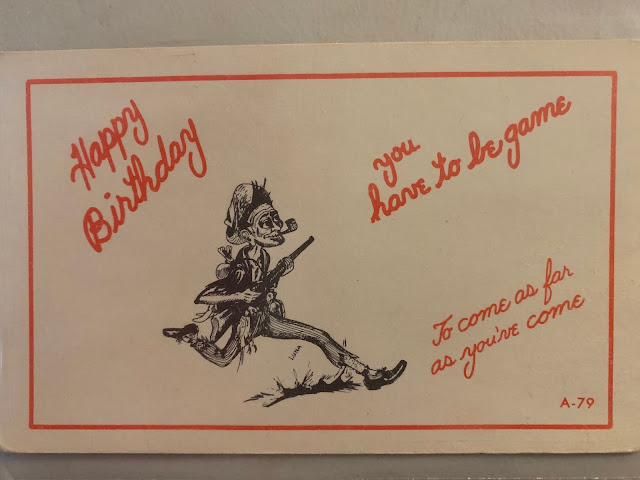 Happy
Birthday
you
have to be game
To come as far
as you've come
LUNA
A-79